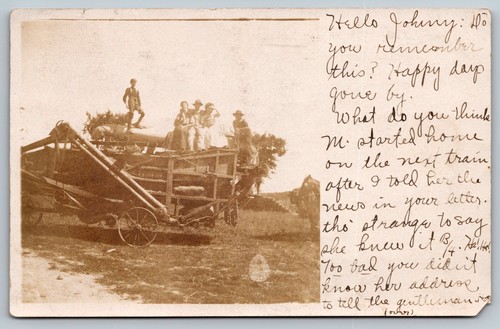 Hello Johny: Do
you remember
this? Happy days
gone by.
What do you think
M. started home
on the next train
after I told her the
news in your letter.
tho' strange to say
she knew it B/4. Ha! Ha!
Too bad you didn't
know her address
to tell the gentleman
(over)